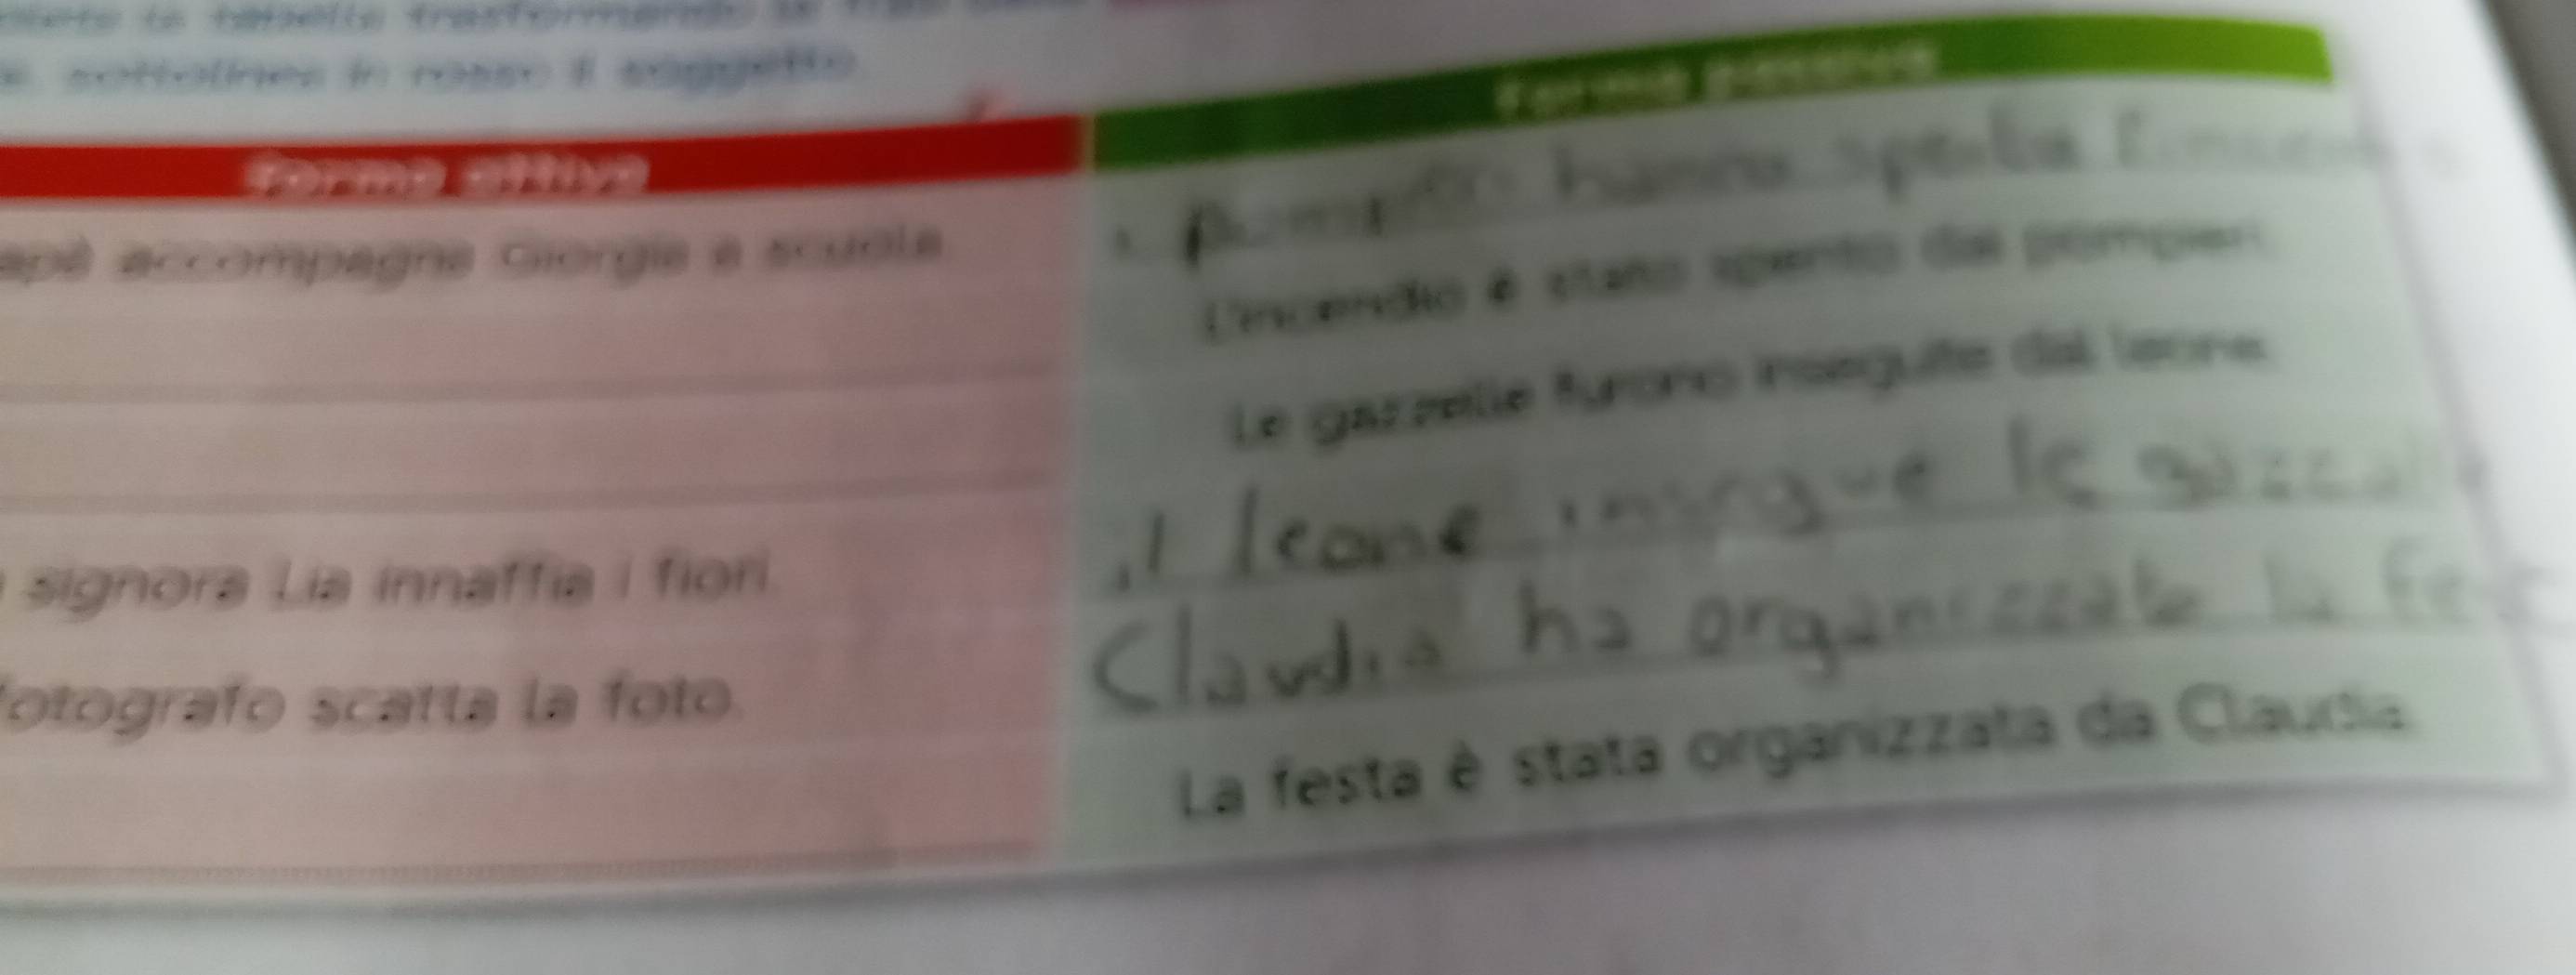 la tabella trasformando le frasi
sottolinea in rosso il soggetto
Forma attiva
Forma passiva
accompagna Giorgia a scuola.
i pompieri hanno spento l'incendio
L'incendio è stato spento dai pompieri.
Le gazzelle furono inseguite dal leone.
il leone insegue le
signora Lia innaffia i fiori.
Claudia ha organizzato la
fotografo scatta la foto.
La festa è stata organizzata da Claudia.